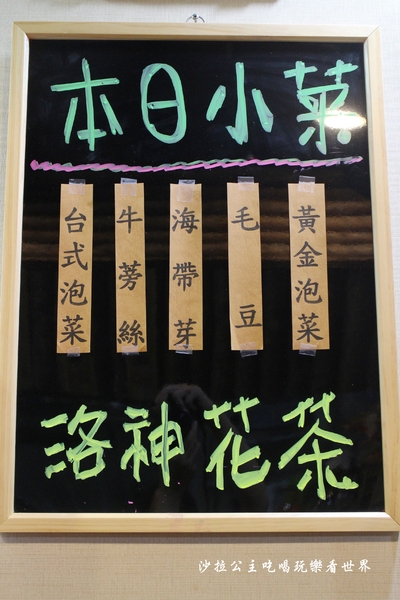 本日小菜
台式泡菜
牛蒡絲
海帶芽
毛豆
黃金泡菜
洛神花茶
沙拉公主吃喝玩樂看世界